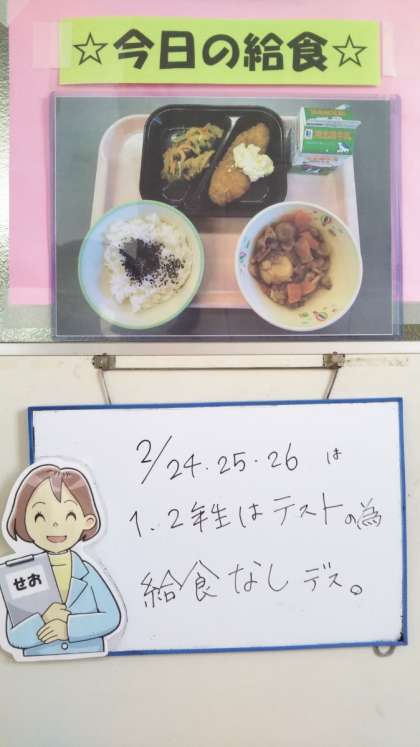 ☆今日の給食☆
2/24・25・26 は
1、2年生はテストの為
給食なしデス。
せお